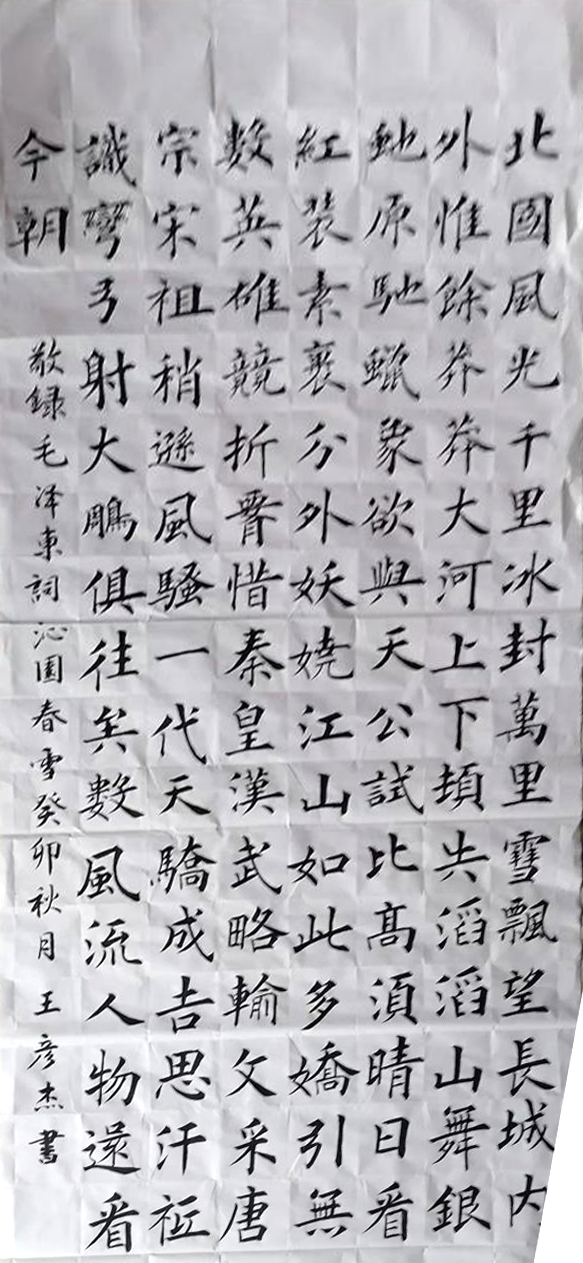 北國風光千里冰封萬里雪飄望長城内
外惟餘莽莽大河上下頓失滔滔山舞銀
虵原馳蠟象欲與天公試比髙須晴日看
紅裝素裹分外妖嬈江山如此多嬌引無
數英雄競折腰惜秦皇漢武略輸文采唐
宗宋祖稍遜風騷一代天驕成吉思汗祗
識彎弓射大鵰俱往矣數風流人物還看
今朝
敬録毛泽東詞沁園春雪癸卯秋月王彦杰書